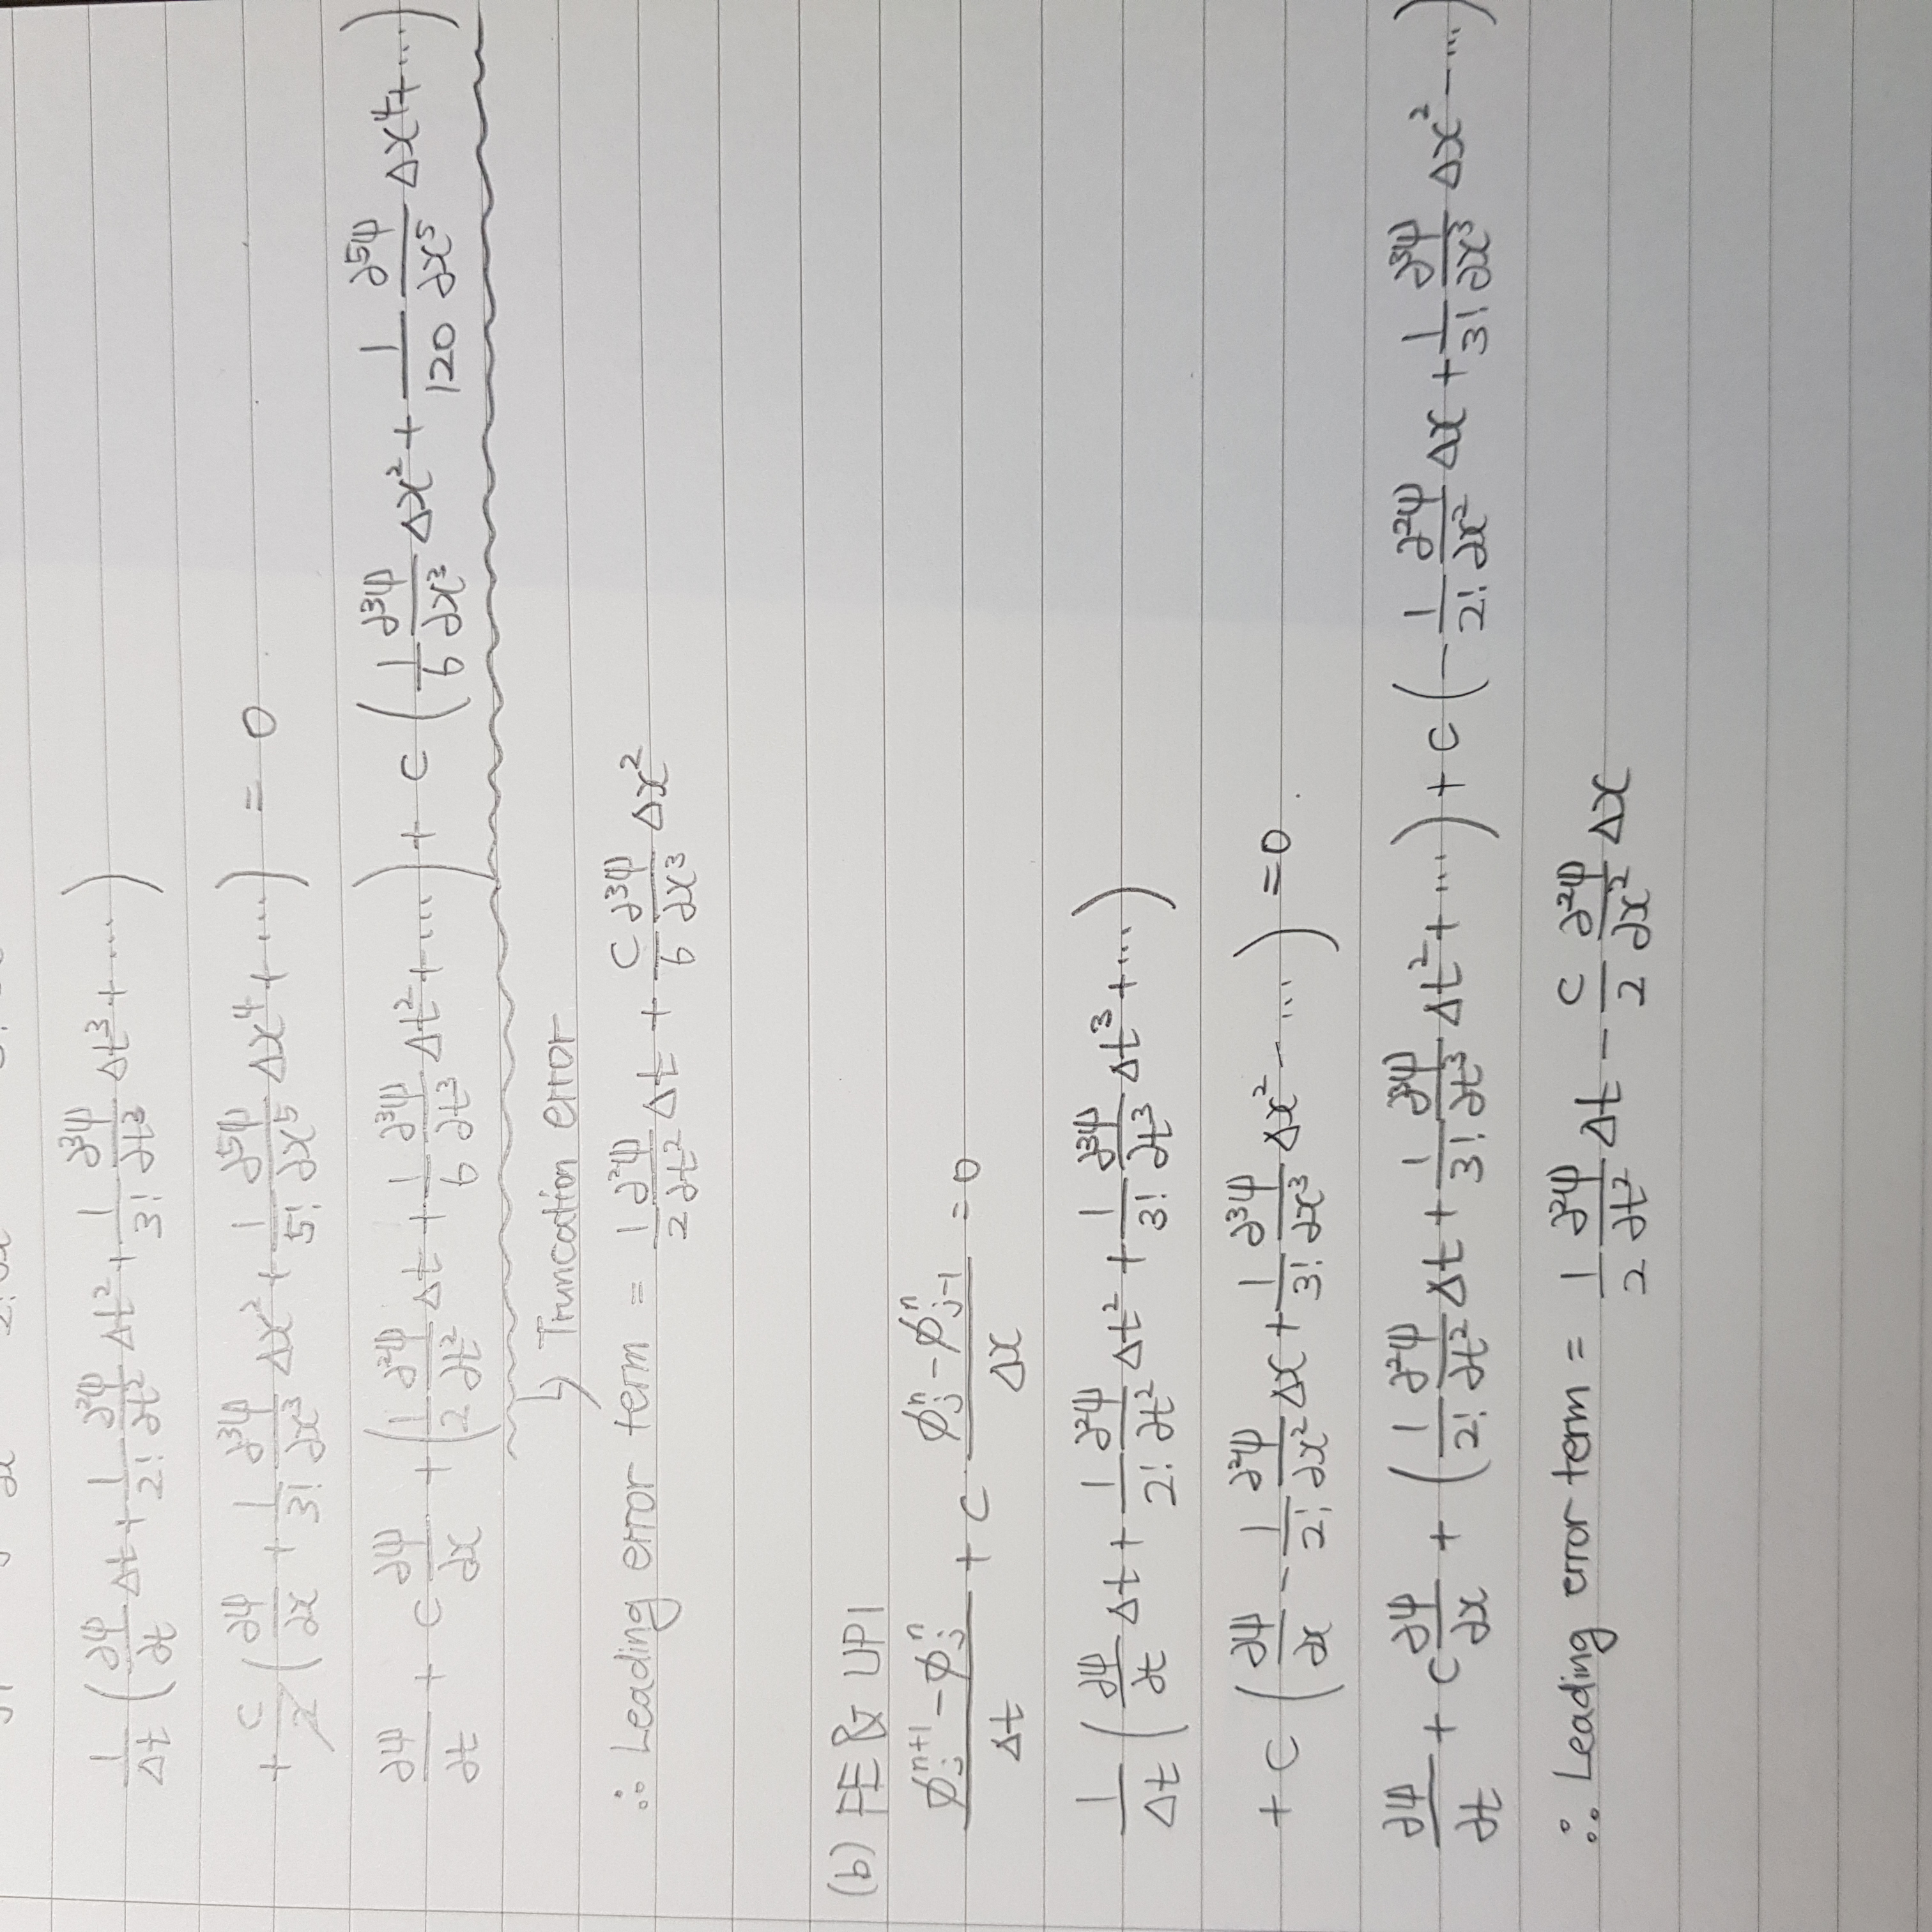 1/Δt (∂ψ/∂t Δt + 1/2! ∂²ψ/∂t² Δt² + 1/3! ∂³ψ/∂t³ Δt³ + ...)
+ c/2 (∂ψ/∂x + 1/3! ∂³ψ/∂x³ Δx² + 1/5! ∂⁵ψ/∂x⁵ Δx⁴ + ...) = 0
∂ψ/∂t + c ∂ψ/∂x + (1/2 ∂²ψ/∂t² Δt + 1/6 ∂³ψ/∂t³ Δt² + ...) + c (1/6 ∂³ψ/∂x³ Δx² + 1/120 ∂⁵ψ/∂x⁵ Δx⁴ + ...)
↳ Truncation error
∴ Leading error term = 1/2 ∂²ψ/∂t² Δt + c/6 ∂³ψ/∂x³ Δx²
(b) FE & UP1
(ϕⱼⁿ⁺¹ - ϕⱼⁿ)/Δt + c · (ϕⱼⁿ - ϕⱼ₋₁ⁿ)/Δx = 0
1/Δt (∂ψ/∂t Δt + 1/2! ∂²ψ/∂t² Δt² + 1/3! ∂³ψ/∂t³ Δt³ + ...)
+ c (∂ψ/∂x - 1/2! ∂²ψ/∂x² Δx + 1/3! ∂³ψ/∂x³ Δx² - ...) = 0.
∂ψ/∂t + c ∂ψ/∂x + (1/2! ∂²ψ/∂t² Δt + 1/3! ∂³ψ/∂t³ Δt² + ...) + c (- 1/2! ∂²ψ/∂x² Δx + 1/3! ∂³ψ/∂x³ Δx² - ...)
∴ Leading error term = 1/2 ∂²ψ/∂t² Δt - c/2 ∂²ψ/∂x² Δx